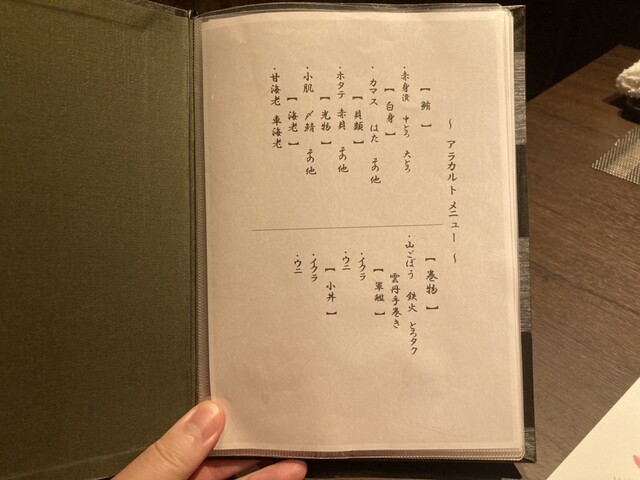 ～ アラカルト メニュー ～
【 鮪 】
・赤身漬 中とろ 大とろ
【 白身 】
・カマス はた その他
【 貝類 】
・ホタテ 赤貝 その他
【 光物 】
・小肌 〆鯖 その他
【 海老 】
・甘海老 車海老
【 巻物 】
・山ごぼう 鉄火 とろタク
雲丹手巻き
【 軍艦 】
・イクラ
・ウニ
【 小丼 】
・イクラ
・ウニ